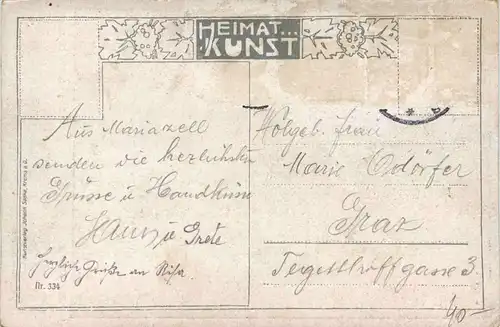 HEIMAT...
KUNST
Aus Mariazell
senden die herzlichsten
Grüsse u Handküsse
Hans u Grete
herzliche Grüße an
Nr. 334
Wolgeb. Frau
Marie
Graz
Tegetthoffgasse 3
40-